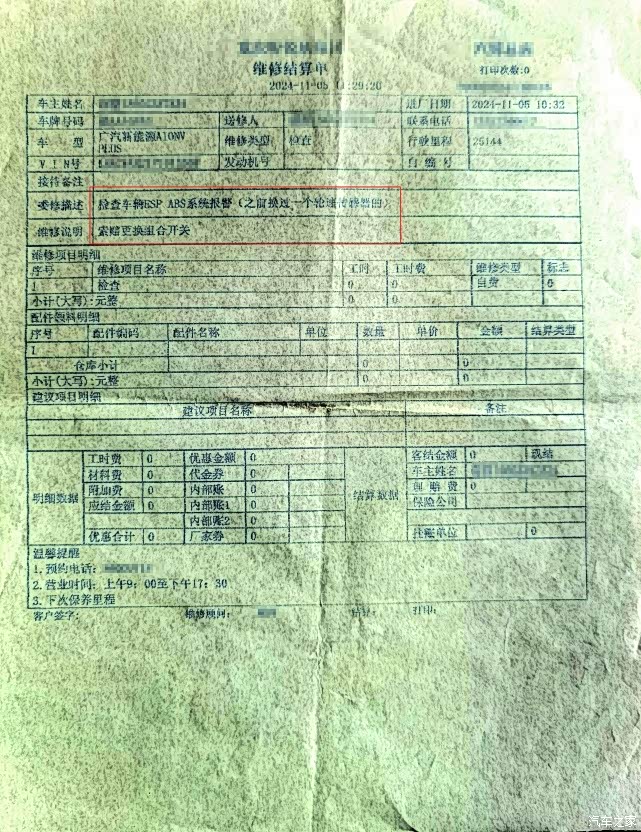 维修结算单
打印次数:0
2024-11-05 11:29:20
车主姓名 进厂日期 2024-11-05 10:32
车牌号码 送修人 联系电话
车 型 广汽新能源A10NV PLUS 维修类型 检查 行驶里程 25144
VIN号 发动机号 自编号
接待备注
委修描述 检查车辆ESP ABS系统报警(之前换过一个轮速传感器的)
维修说明 索赔更换组合开关
维修项目明细
序号 维修项目名称 工时 工时费 维修类型 标志
1 检查 0 0 自费 0
小计(大写):元整 0 0
配件领料明细
序号 配件编码 配件名称 单位 数量 单价 金额 结算类型
1
仓库小计 0 0
小计(大写):元整 0 0
建议项目明细
建议项目名称 备注
明细数据 结算数据
工时费 0 优惠金额 0 客结金额 0 现结
材料费 0 代金券 0 车主姓名
附加费 0 内部账 0 索赔费 0
应结金额 0 内部账1 0 保险公司
内部账2 0
优惠合计 0 厂家券 0 挂账单位 0
温馨提醒
1.预约电话:
2.营业时间:上午9:00至下午17:30
3.下次保养里程
客户签字: 维修顾问: 结算: 打印:
汽车之家